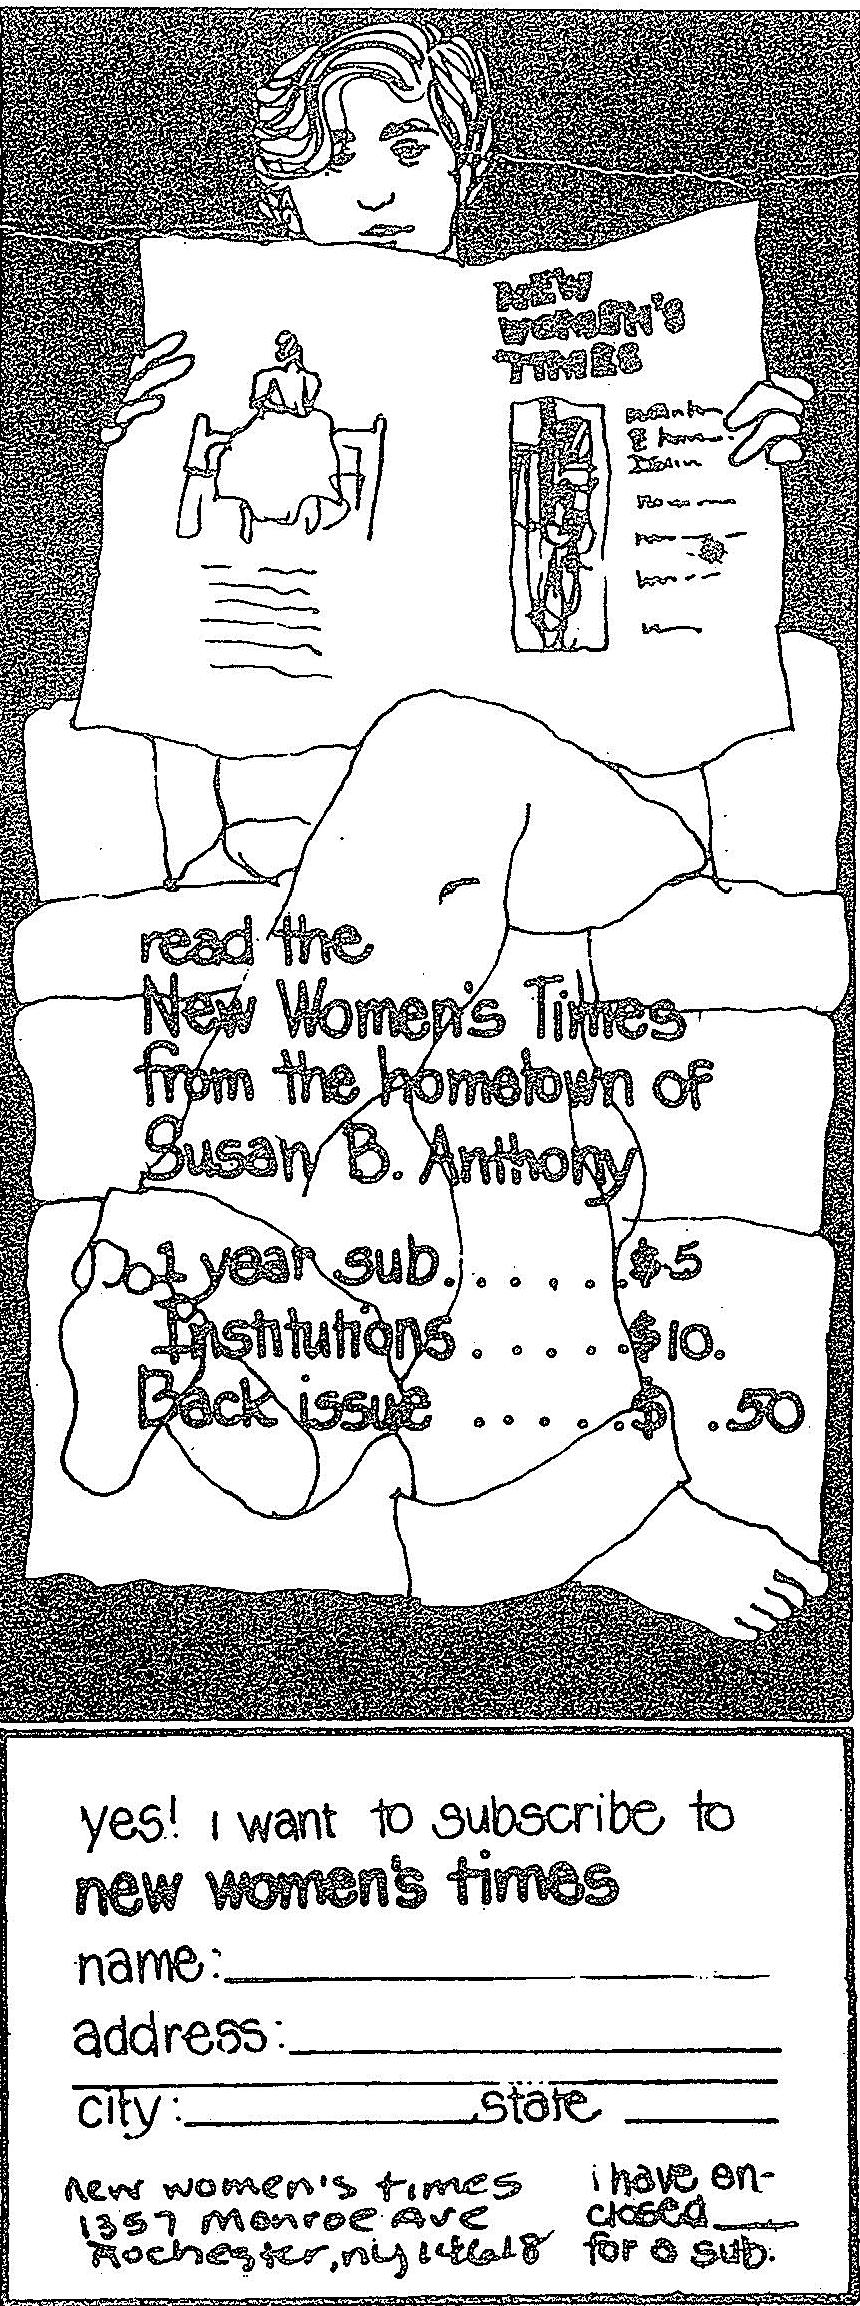 NEW
WOMEN'S
TIMES
read the
New Women's Times
from the hometown of
Susan B. Anthony
1 year sub. . . . . . . $5
Institutions . . . . . $10.
Back issue . . . . . . $ .50
yes! i want to subscribe to
new women's times
name:
address:
city: state
new women's times
1357 Monroe Ave
Rochester, ny 14618
i have en-
closed
for a sub.